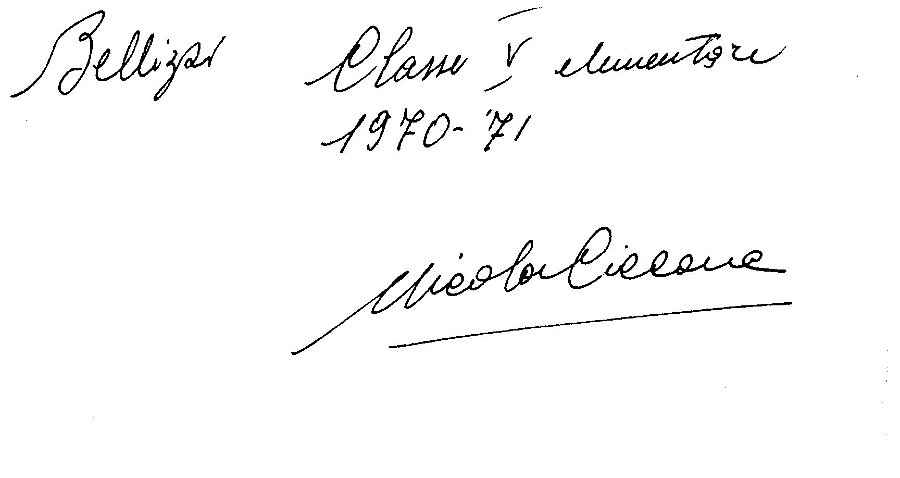 Bellizzi Classe V elementare
1970-'71
Nicola Ciccone